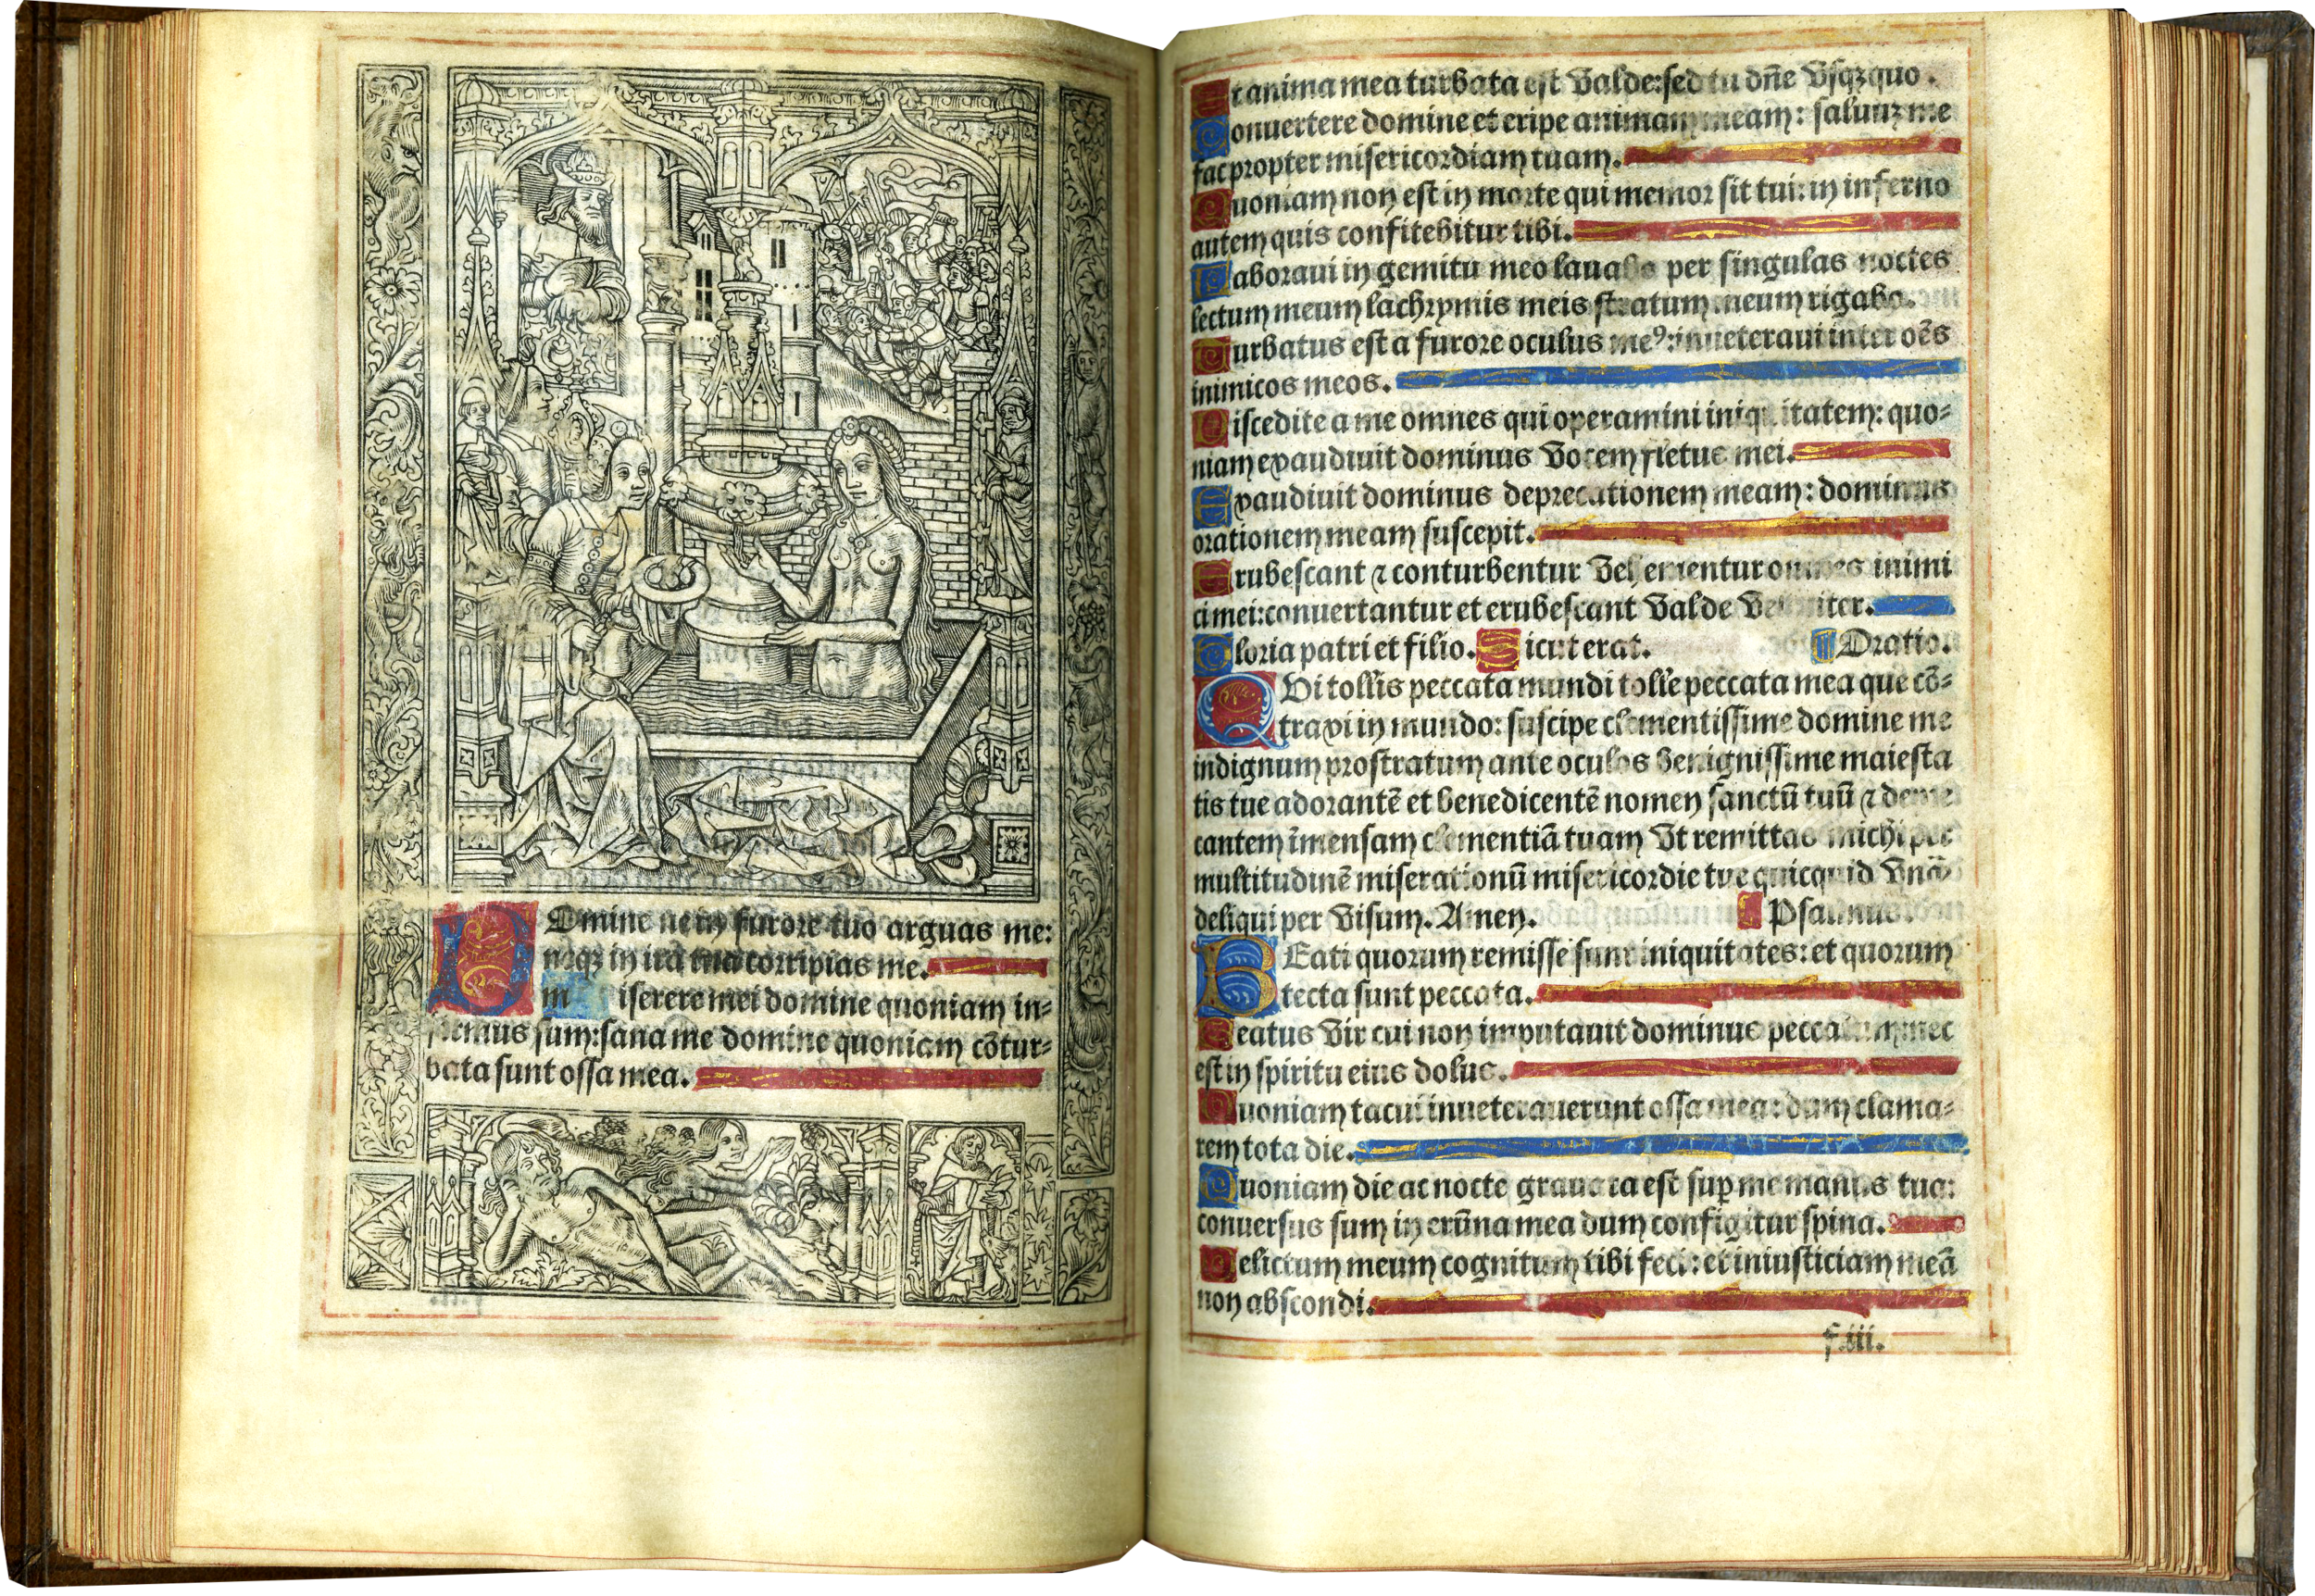 Domine ne in furore tuo arguas me:
neqꝫ in ira tua corripias me.
miserere mei domine quoniam in-
firmus sum: sana me domine quoniam cõtur-
bata sunt ossa mea.
Et anima mea turbata est valde: sed tu dñe vsqꝫquo.
Conuertere domine et eripe animam meam: saluuꝫ me
fac propter misericordiam tuam.
Quoniam non est in morte qui memor sit tui: in inferno
autem quis confitebitur tibi.
Laboraui in gemitu meo lauabo per singulas noctes
lectum meum lachrymis meis stratum meum rigabo.
Turbatus est a furore oculus meꝰ: inueteraui inter oẽs
inimicos meos.
Discedite a me omnes qui operamini iniquitatem: quo-
niam exaudiuit dominus vocem fletus mei.
Exaudiuit dominus deprecationem meam: dominus
orationem meam suscepit.
Erubescant ⁊ conturbentur vehementur omnes inimi
ci mei: conuertantur et erubescant valde velociter.
Gloria patri et filio. Sicut erat. Oratio.
QVi tollis peccata mundi tolle peccata mea que cõ-
traxi in mundo: suscipe clementissime domine me
indignum prostratum ante oculos benignissime maiesta
tis tue adorantẽ et benedicentẽ nomen sanctũ tuũ ⁊ depre
cantem ĩmensam clementiã tuam vt remittas michi per
multitudinẽ miserationũ misericordie tue quicquid vnã
deliqui per visum. Amen. Psalmus.
BEati quorum remisse sunt iniquitates: et quorum
tecta sunt peccata.
Beatus vir cui non imputauit dominus peccatum: nec
est in spiritu eius dolus.
Quoniam tacui inueterauerunt ossa mea: dum clama-
rem tota die.
Quoniam die ac nocte grauata est sup me manus tua:
conuersus sum in erũna mea dum configitur spina.
Delictum meum cognitum tibi feci: et iniusticiam meã
non abscondi.
f.iii.